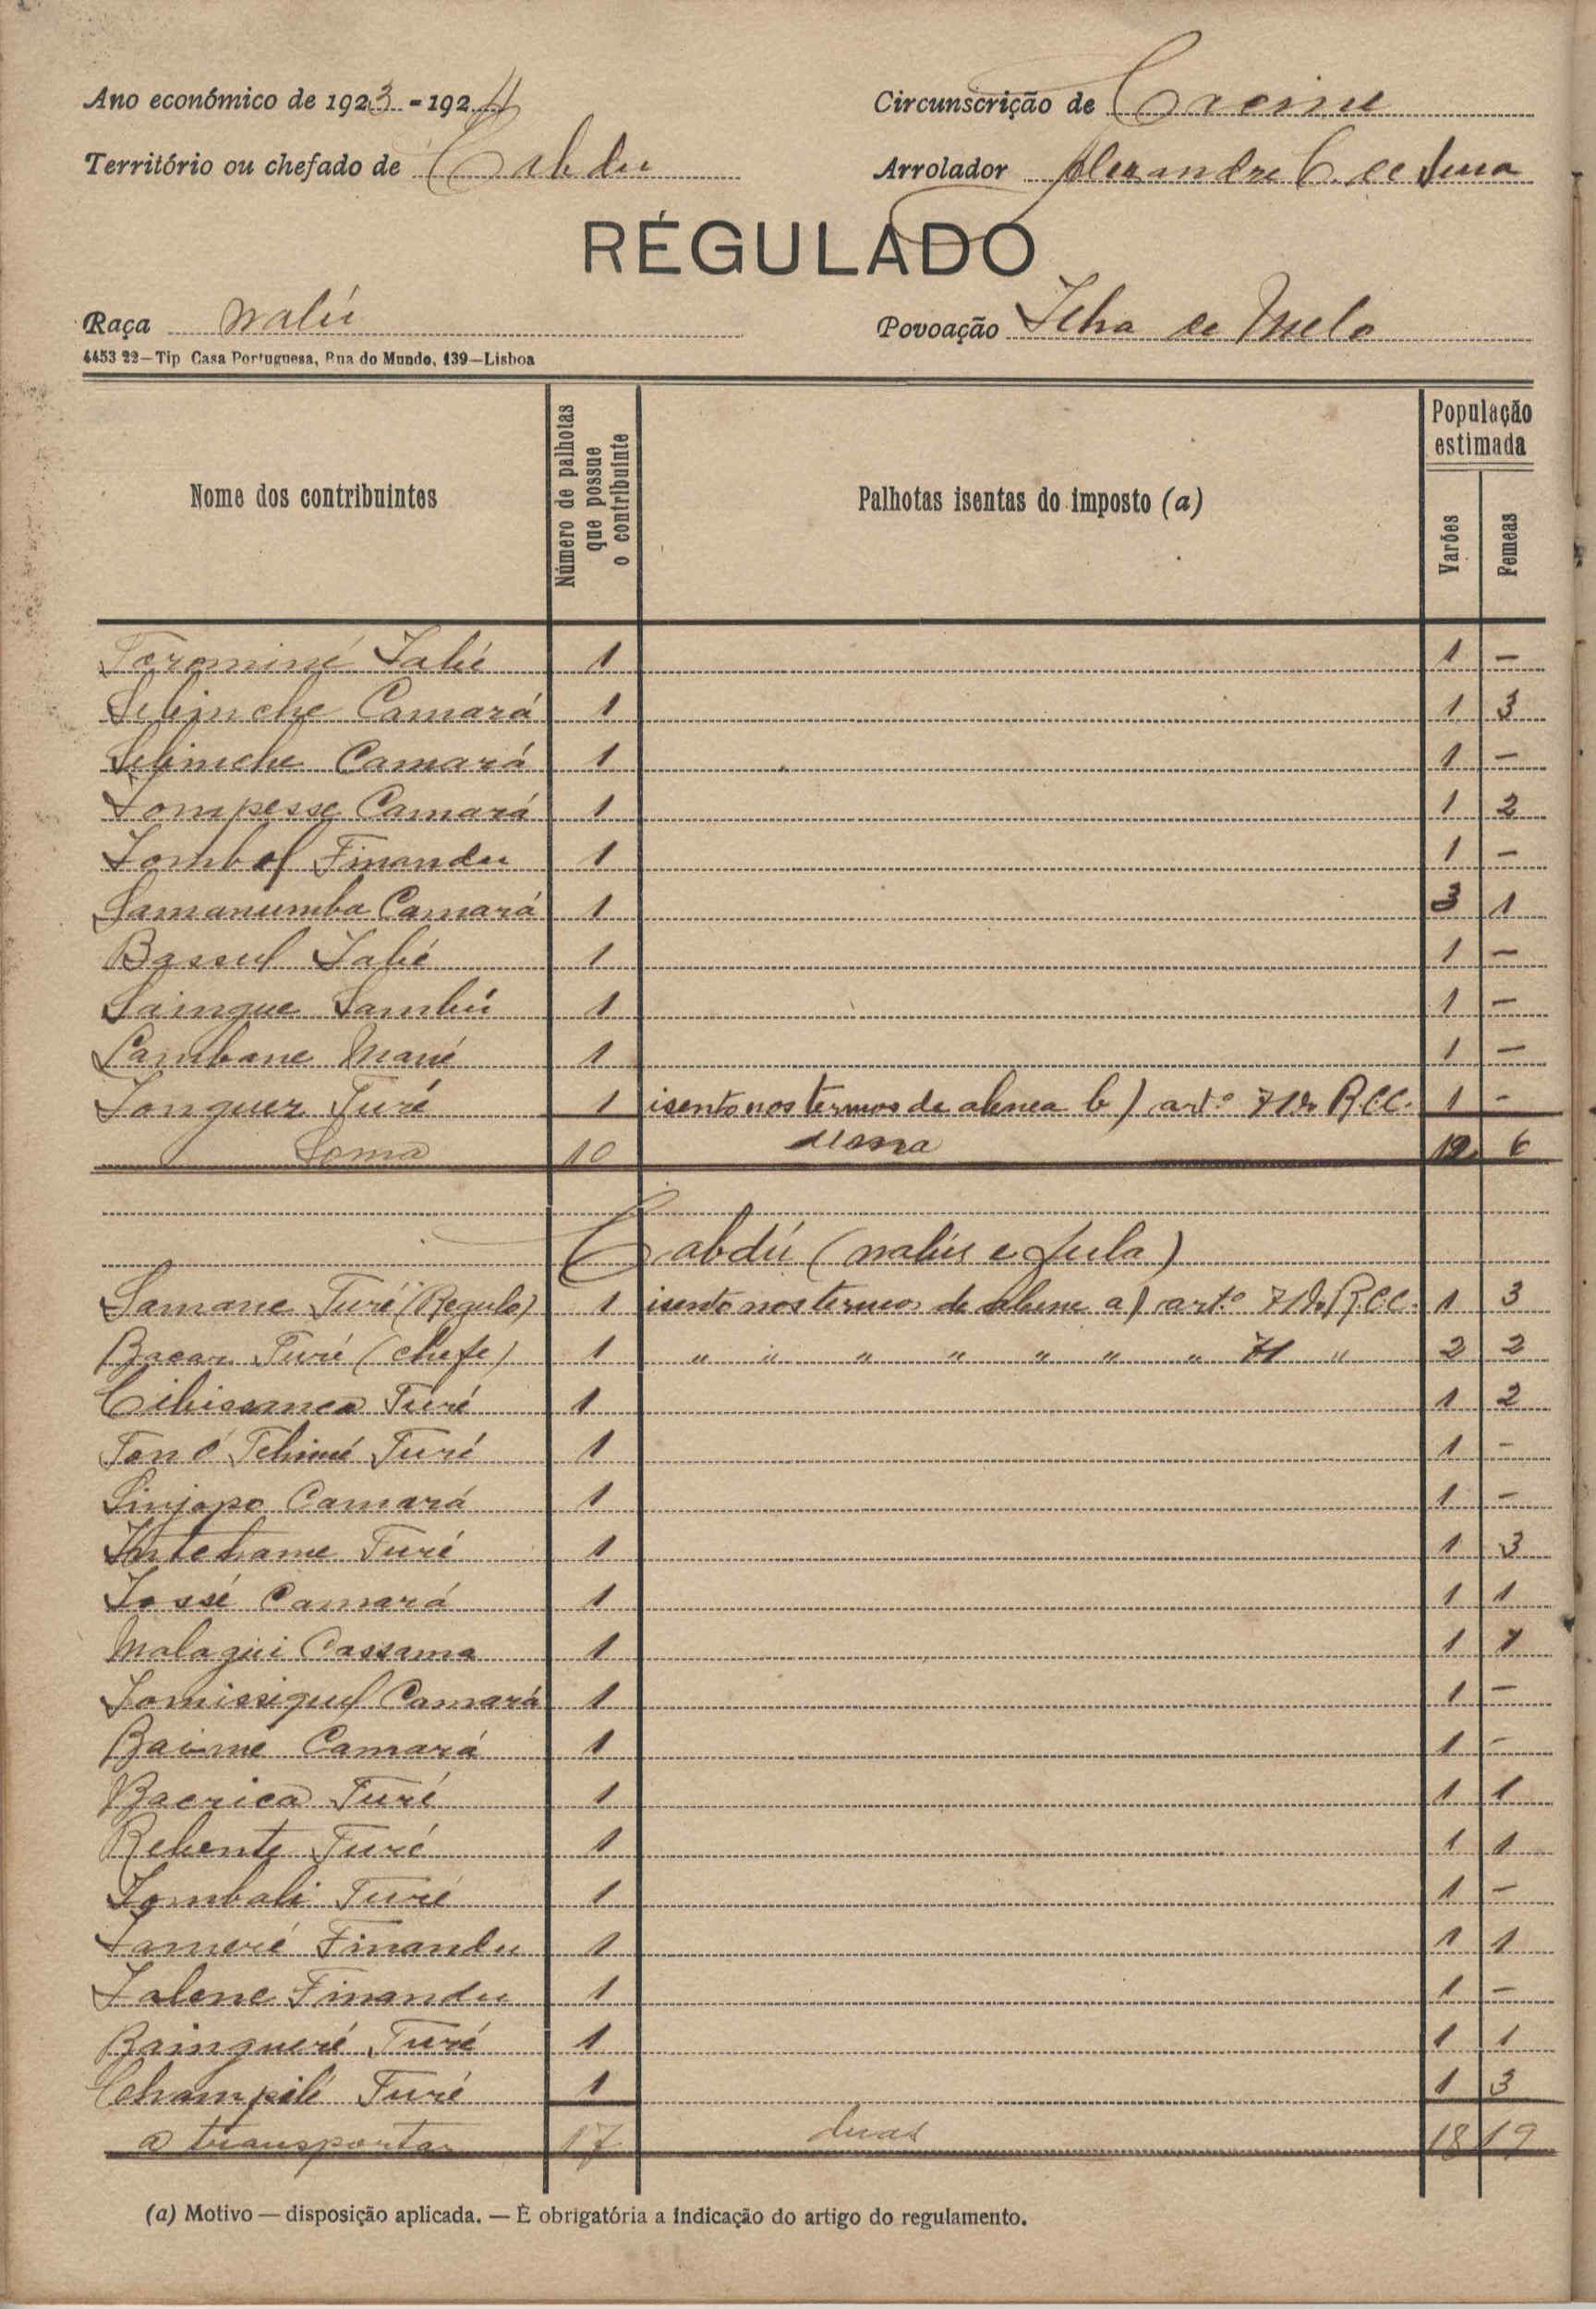 Ano económico de 1923-1924 Circunscrição de Cacine
Território ou chefado de Cabdu Arrolador Alexandre C. de Sena
RÉGULADO
Raça nalú Povoação Ilha de Melo
4453 22—Tip Casa Portuguesa, Rua do Mundo, 139—Lisboa
Nome dos contribuintes
Número de palhotas que possue o contribuinte
Palhotas isentas do imposto (a)
População estimada
Varões
Femeas
1 1 -
Camará 1 1 3
Camará 1 1 -
Tompesse Camará 1 1 2
Finandu 1 1 -
Samanumba Camará 1 3 1
Bassul 1 1 -
Saingue Sambú 1 1 -
Cambane Mané 1 1 -
Turé 1 isento nos termos de alinea b) artº 7 do R.C.C. 1 -
Soma 10 12 6
Cabdú (nalús e fula)
Samane Turé (Regulo) 1 isento nos termos de a) artº 7 do R.C.C. 1 3
Bacar Turé (chefe) 1 " " " " " " " " 2 2
Turé 1 1 2
Turé 1 1 -
Sinjopo Camará 1 1 -
Turé 1 1 3
Camará 1 1 1
Malagüi Cassama 1 1 1
Camará 1 1 -
Baimé Camará 1 1 -
Bacrica Turé 1 1 1
Rebente Turé 1 1 1
Tombali Turé 1 1 -
Finandu 1 1 1
Finandu 1 1 -
Bainqueré Turé 1 1 1
Champilé Turé 1 1 3
a transportar 17 duas 18 19
(a) Motivo — disposição aplicada. — É obrigatória a indicação do artigo do regulamento.